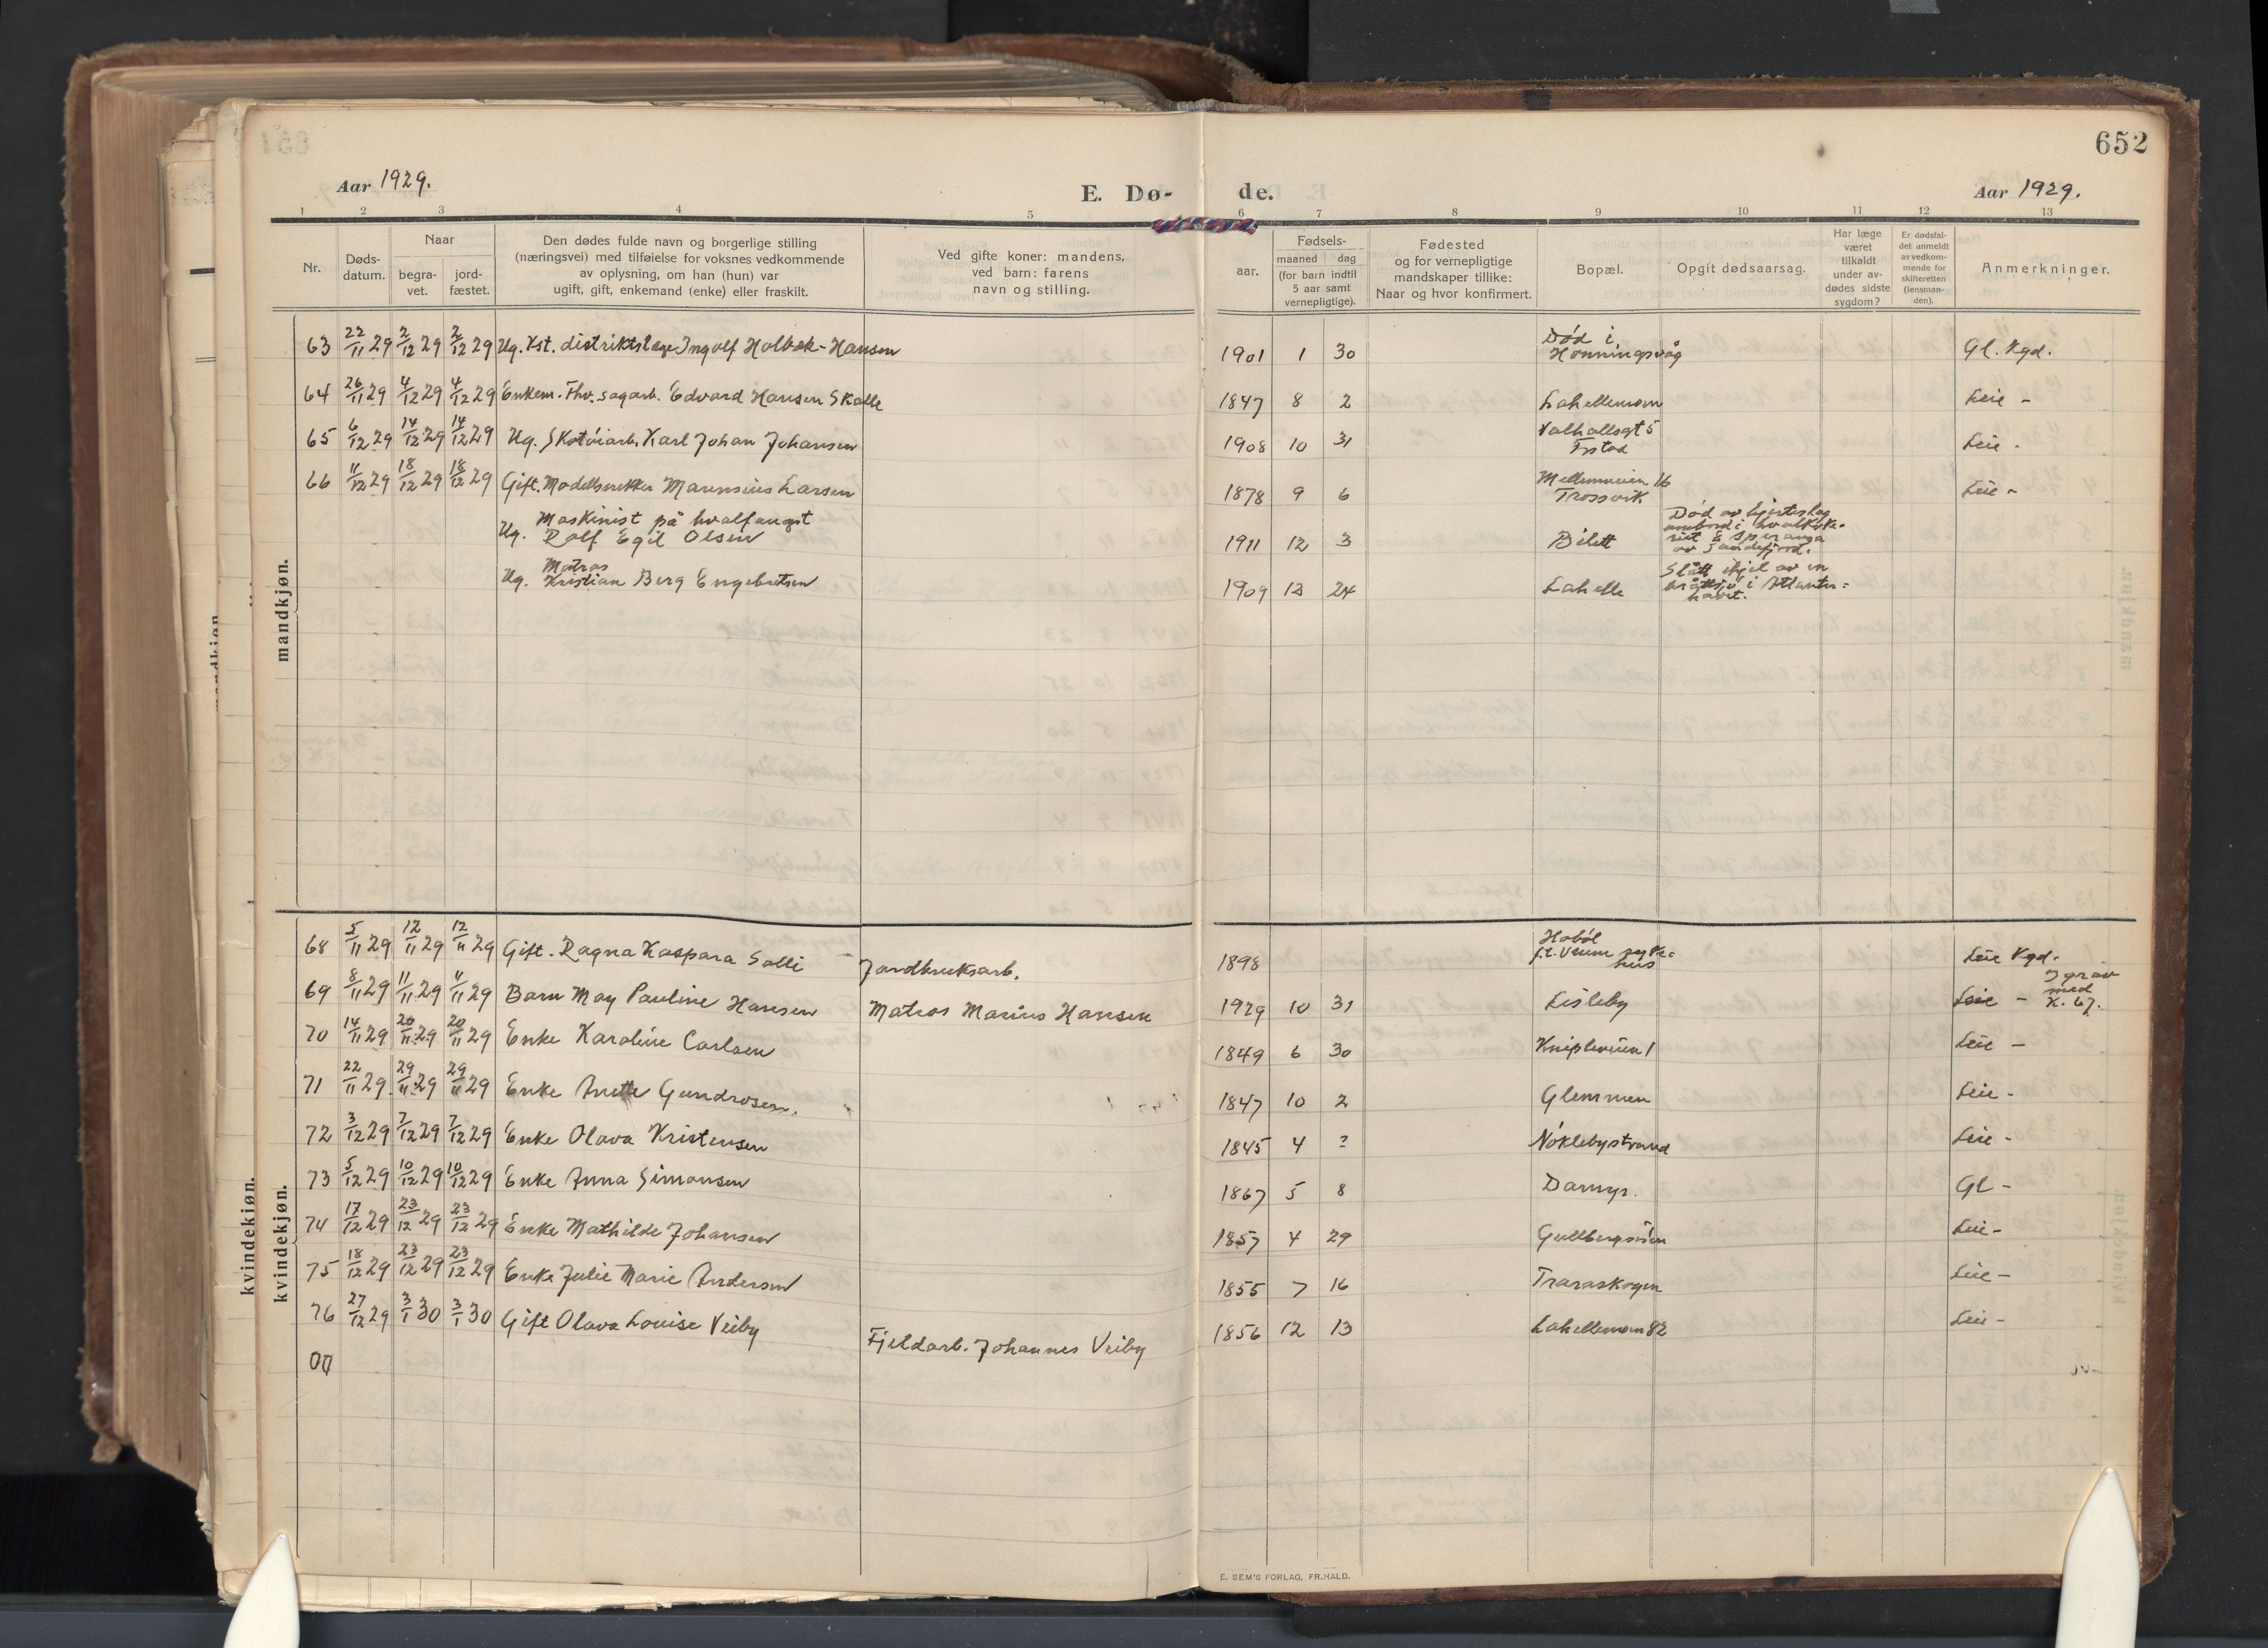 652
Aar 1929.
E. Dø- de.
Aar 1929.
1 2 3 4 5 6 7 8 9 10 11 12 13
Nr.
Døds-
datum.
Naar
begra-
vet.
jord-
fæstet.
Den dødes fulde navn og borgerlige stilling
(næringsvei) med tilføielse for voksnes vedkommende
av oplysning, om han (hun) var
ugift, gift, enkemand (enke) eller fraskilt.
Ved gifte koner: mandens,
ved barn: farens
navn og stilling.
aar.
Fødsels-
maaned dag
(for barn indtil
5 aar samt
vernepligtige).
Fødested
og for vernepligtige
mandskaper tillike:
Naar og hvor konfirmert.
Bopæl.
Opgit dødsaarsag.
Har læge
været
tilkaldt
under av-
dødes sidste
sygdom?
Er dødsfal-
det anmeldt
av vedkom-
mende for
skifteretten
(lensman-
den).
Anmerkninger.
mandkjøn.
63 22/11 29 2/12 29 2/12 29 Ug. Kst. distriktslæge Ingolf Holbæk-Hansen 1901 1 30 Død i
Honningsvåg Gl. Kgd.
64 26/11 29 4/12 29 4/12 29 Enkem. Fhv. sagarb. Edvard Hansen Skolle 1847 8 2 Lahellemoen Leie -
65 6/12 29 14/12 29 14/12 29 Ug. Skotøiarb. Karl Johan Johansen 1908 10 31 Valhallsgt 5
Frstad Leie -
66 11/12 29 18/12 29 18/12 29 Gift. Modellsnekker Marensius Larsen 1878 9 6 Mellemveien 16
Trossvik Leie -
Maskinist på hvalfangst
Ug. Rolf Egil Olsen 1911 12 3 Bilitt
Død av hjerteslag
ombord i hvalkoke-
riet Esperanza
av Sandefjord.
Matros
Ug. Kristian Berg Engebretsen 1909 12 24 Lahelle
Slått ihjel av en
bråttsjø i Atlanter-
havet.
kvindekjøn.
kvindekjøn.
68 5/11 29 12/11 29 12/11 29 Gift. Ragna Kaspara Solli Jordbruksarb. 1898 Hobøl
f.t. Veum syke-
hus Leie Kgd.
69 8/11 29 11/11 29 11/11 29 Barn May Pauline Hansen Matros Marius Hansen 1929 10 31 Lisleby Leie - I grav
med
K. 67.
70 14/11 29 20/11 29 20/11 29 Enke Karoline Carlsen 1849 6 30 Knipleveien 1 Leie -
71 22/11 29 29/11 29 29/11 29 Enke Anette Gundrosen. 1847 10 2 Glemmen Leie -
72 3/12 29 7/12 29 7/12 29 Enke Olava Kristensen 1845 4 ? Nøklebystrand Leie -
73 5/12 29 10/12 29 10/12 29 Enke Anna Simonsen 1867 5 8 Dammyr. Gl -
74 17/12 29 23/12 29 23/12 29 Enke Mathilde Johansen 1857 4 29 Gullbergsåsen Leie -
75 18/12 29 23/12 29 23/12 29 Enke Julie Marie Andersen 1855 7 16 Traraskogen Leie -
76 27/12 29 3/1 30 3/1 30 Gift Olava Louise Veiby Fjeldarb. Johannes Veiby 1856 12 13 Lahellemoen 82 Leie -
E. SEM'S FORLAG, FR.HALD.